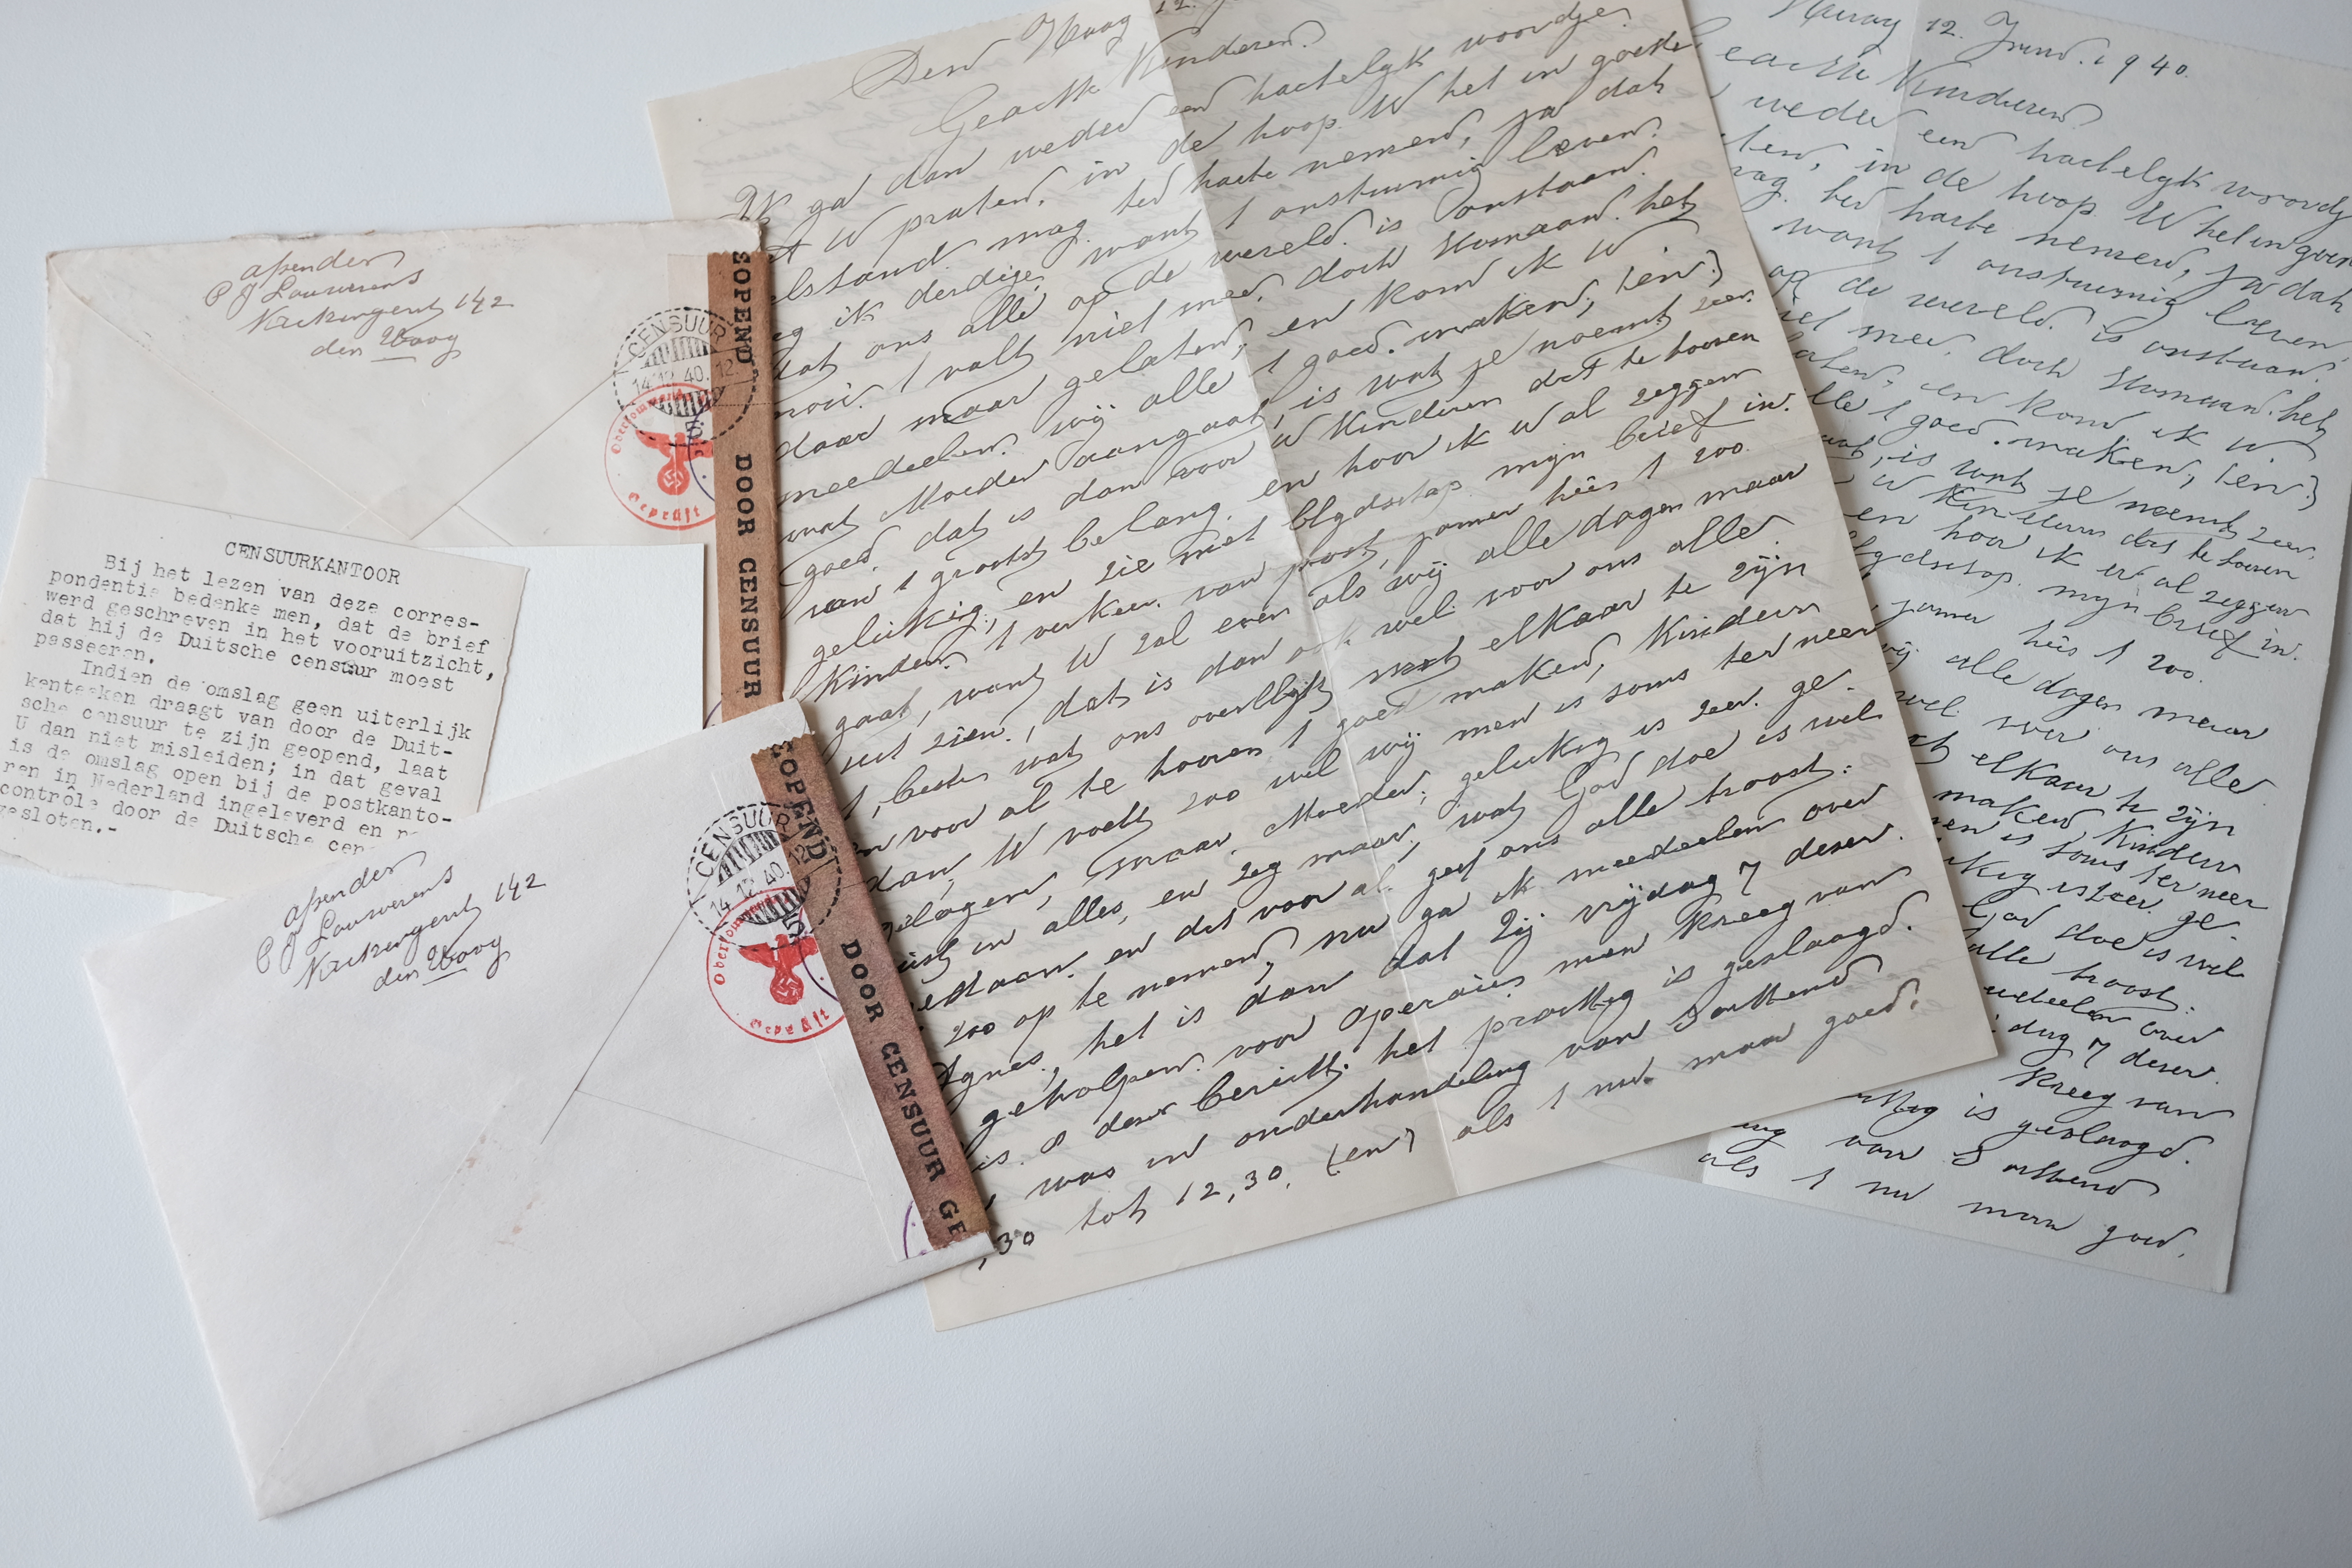 afzender
P J Louwerens
142
den Haag
CENSUUR
14.12.40.12
Oberkommando
Geprüft
GEOPEND DOOR CENSUUR
CENSUURKANTOOR
Bij het lezen van deze corres-
pondentie bedenke men, dat de brief
werd geschreven in het vooruitzicht,
dat hij de Duitsche censuur moest
passeeren.
Indien de omslag geen uiterlijk
kenteeken draagt van door de Duit-
sche censuur te zijn geopend, laat
U dan niet misleiden; in dat geval
is de omslag open bij de postkanto-
ren in Nederland ingeleverd en
contrôle door de Duitsche cen
gesloten.-
afzender
P J Louwerens
142
den Haag
CENSUUR
14.12.40.12
Oberkommando
Geprüft
GEOPEND DOOR CENSUUR GE
Den Haag 12.
Geachte Kinderen.
Ik ga dan weder een hartelyk woordje.
et U praten, in de hoop U het in goede
elstand mag ter harte nemen, ja dat
eg ik derdige, want 1 onstuimig leven.
dat ons alle op de wereld is onstaan.
1 valt niet mee, doch het
daar maar gelaten, en kom ik U
meedeelen. wij alle 1 goed. maken, (en)
wat Moeder aangaat, is wat je noemt zeer.
goed, dat is dan voor U Kinderen dat te hooren
van 1 groot belang, en hoor ik U al zeggen
gelukig, en zie met blydschap mijn brief in.
Kinderen 1 verkeer van post, jamer hêes 1 zoo.
gaat, want U zal even als wij alle dagen maar
uit zien, dat is dan ook wel voor ons alle.
1, beste wat ons overblijft met elkaar te zijn
en voor al te hooren 1 goed maken, Kinders
dan, U voelt zoo wel wij men is soms ter neer
gelagen, maar Moeder, gelukig is zeer ge-
uist in alles, en zeg maar, wat God doe is wel
gedaan. en dat voor al geef ons alle troost.
zoo op te nemen, nu ga ik meedeelen over
Agnes, het is dan dat zij vrijdag 7 deser.
geholpen. voor operaies men kreeg van
is. 8 deser bericht. het prachtig is geslaagd.
was in onderhandeling van 3 achtend
,30 tot 12,30, (en) als 1 nu maar goed.
Haag 12. 1940.
eachte Kinderen
weder een hartelyk woordj
ten, in de hoop U het in goed
mag ter harte nemen, ja dat
want 1 onstuimig leven
op de wereld is onstaan.
niet mee, doch het
laten, en kom ik U
lle 1 goed. maken, (en)
aat, is wat je noemt zeer.
U Kinderen dat te hooren
en hoor ik U al zeggen
lydschap mijn brief in.
jamer hêes 1 zoo.
wij alle dagen maar
wel voor ons alle
et elkaar te zijn
maken, Kinders
men is soms ter neer
ukig is zeer ge-
God doe is wel
alle troost.
edeelen over
jdag 7 deser.
kreeg van
chtig is geslaagd.
ing van 3 achtend
als 1 nu maar goed.